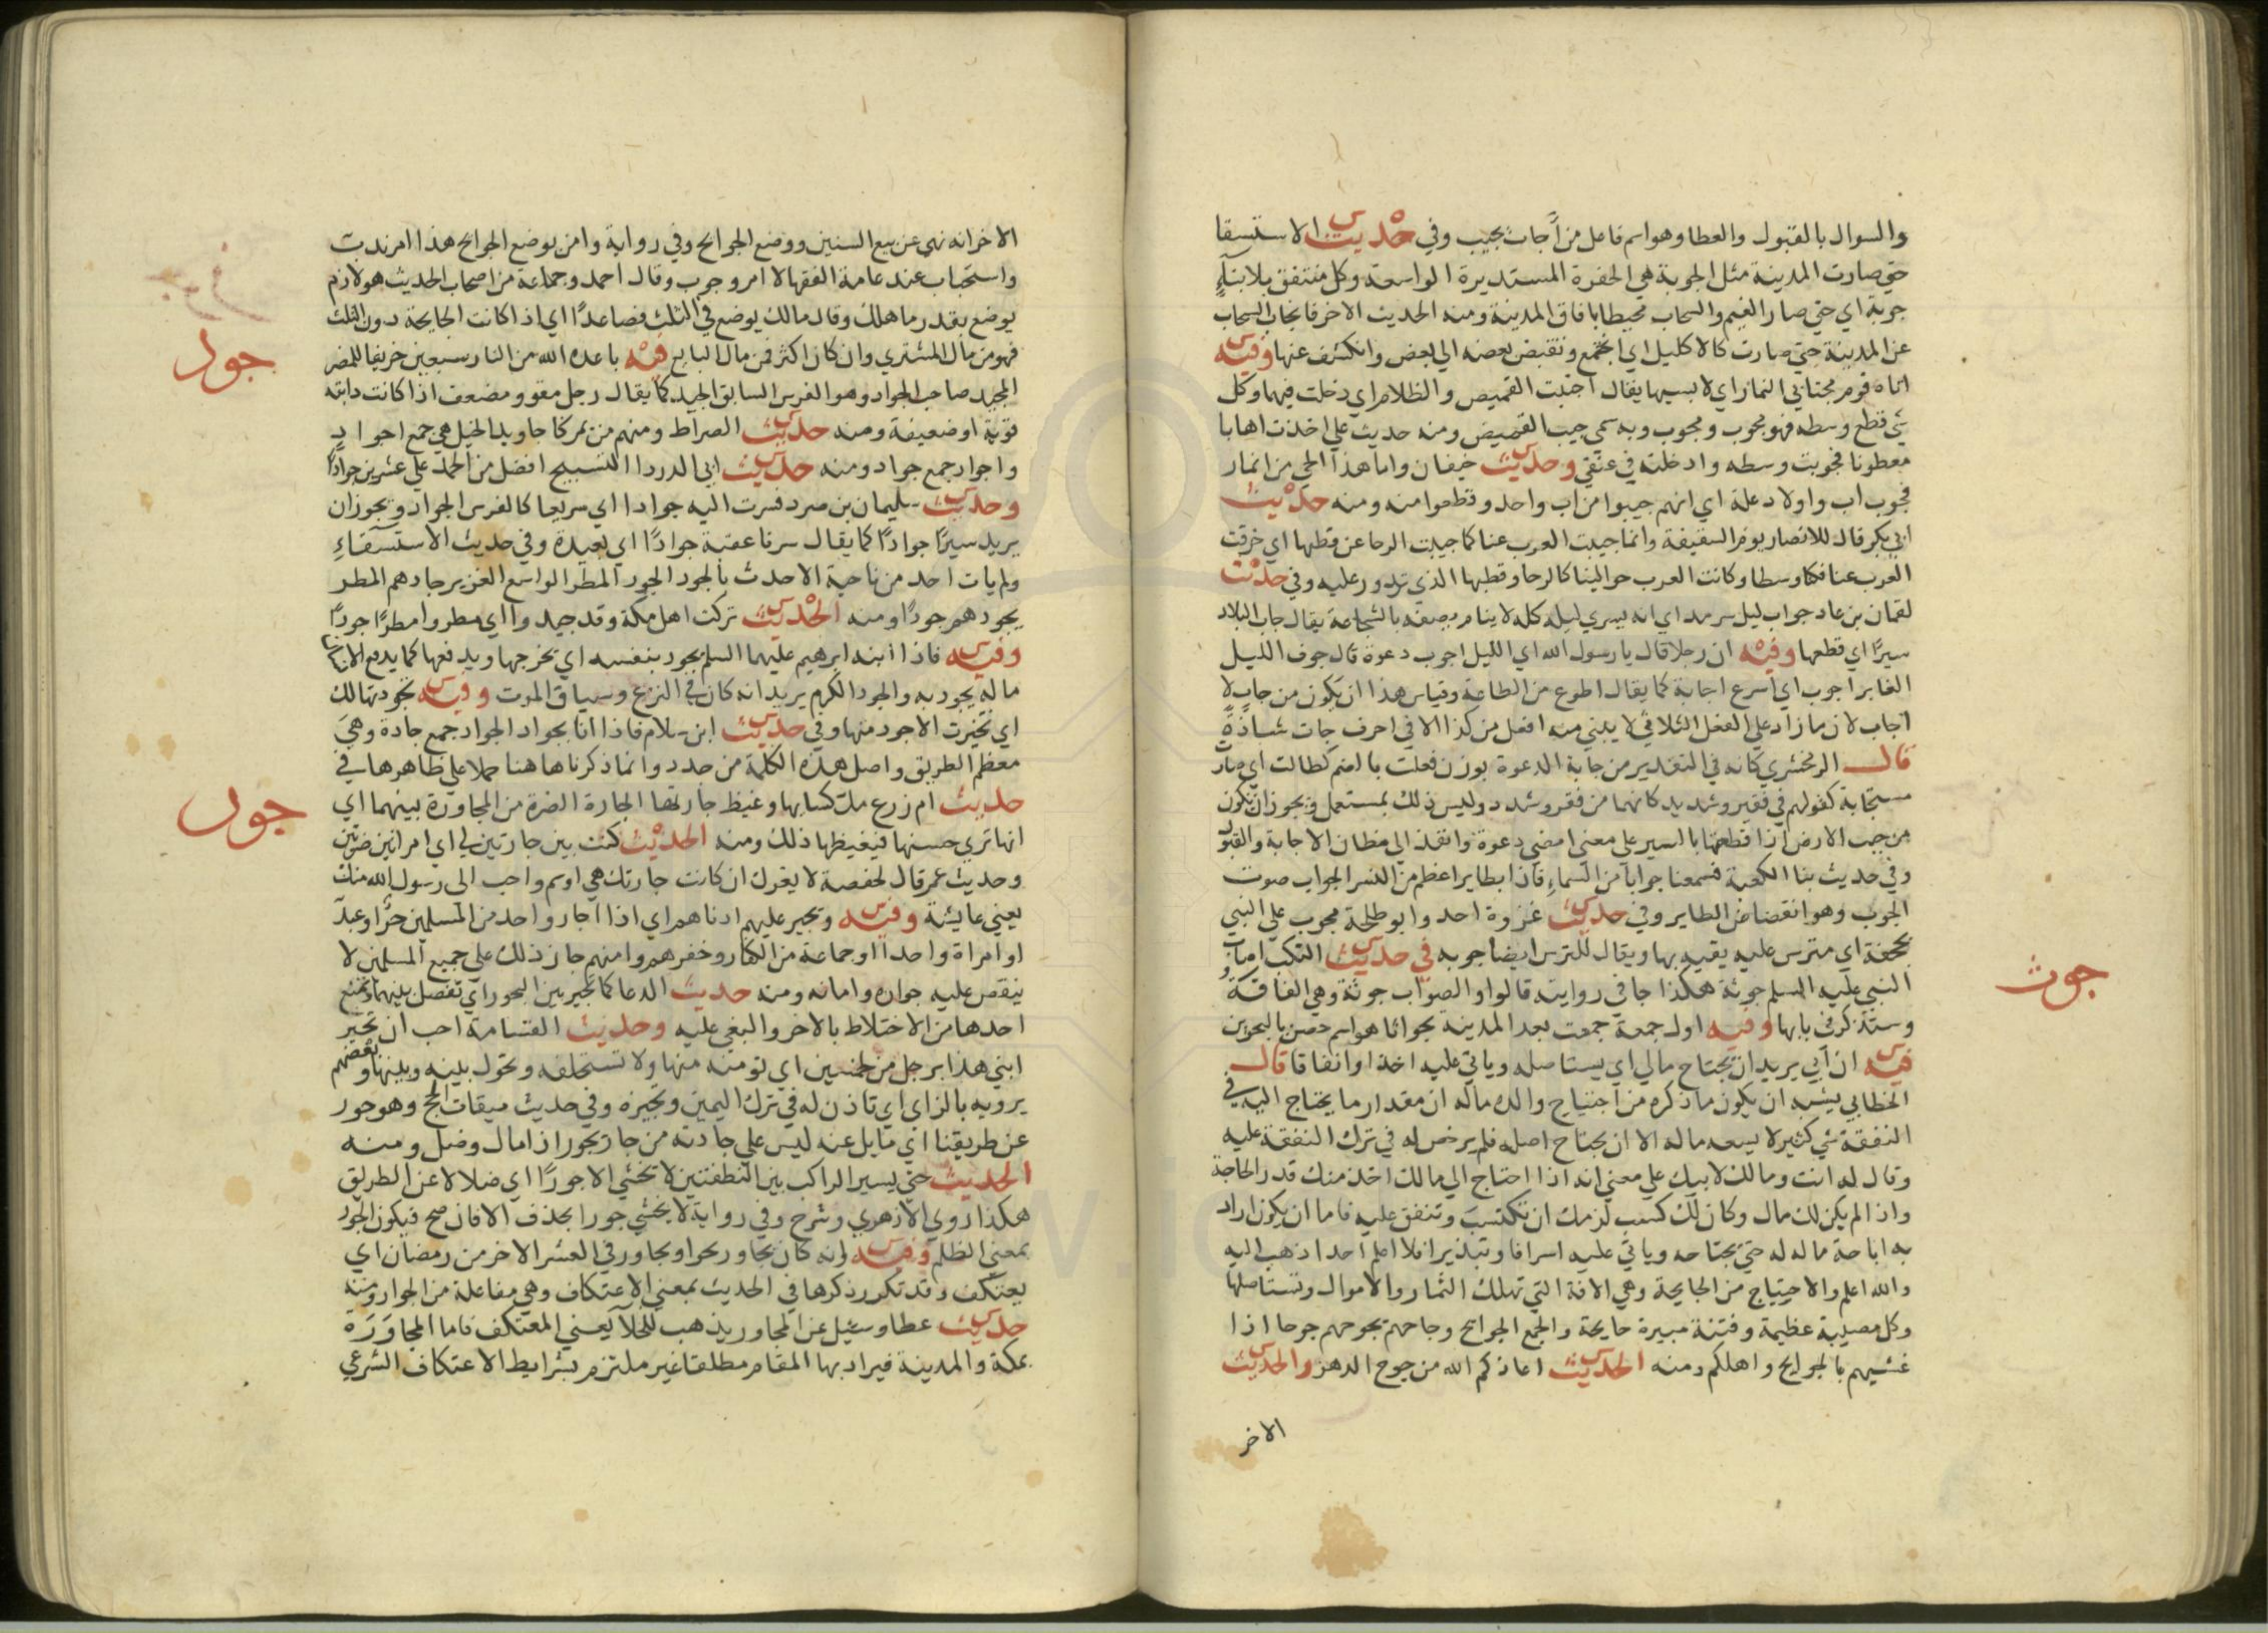 والسوال بالقبول والعطا وهو اسم فاعل من أجاب يجيب وفي حديث الاستسقا
حتي صارت المدينة مثل الجوبة هي الحفرة المستديرة الواسعة وكل منتفق بلا بناءٍ
جوبة اي حتي صار الغيم والسحاب محيطا بافاق المدينة ومنه الحديث الاخر فانجاب السحاب
عن المدينة حتي صارت كالاكليل اي انجمع وتقبض بعضه الي بعض وانكشف عنها وفيه
اتاه قوم مجتابي النمار اي لابسيها يقال اجتبت القميص والظلام اي دخلت فيهما وكل
شي قطع وسطه فهو مجوب ومجوب وبه سمي جيب القميص ومنه حديث علي اخذت اهابا
معطونا فجوبت وسطه وادخلته في عنقي وحديث خيفان واما هذا الحي من انمار
فجوب اب واولاد علة اي انهم جيبوا من اب واحد وقطعوا منه ومنه حديث
ابي بكر قال للانصار يوم السقيفة وانما جيبت العرب عنا كما جيبت الرحا عن قطبها اي خرقت
العرب عنا فكنا وسطا وكانت العرب حوالينا كالرحا وقطبها الذي تدور عليه وفي حديث
لقمان بن عاد جواب ليل سرمد اي انه يسري ليله كله لا ينام يصفه بالشجاعة يقال جاب البلاد
سيرًا اي قطعها وفيه ان رجلا قال يا رسول الله اي الليل اجوب دعوة قال جوف الليل
الغابر اجوب اي اسرع اجابة كما يقال اطوع من الطاعة وقياس هذا ان يكون من جاب لا
اجاب لان ما زاد علي الفعل الثلاثي لا يبني منه افعل من كذا الا في احرف جات شاذةً
قال الزمخشري كانه في التقدير من جابة الدعوة بوزن فعلت بالضم كطالت اي صارت
مستجابة كقولهم في فقير وشديد كانهما من فقر وشدد وليس ذلك بمستعمل ويجوز ان تكون
من جبت الارض اذا قطعتها بالسير علي معني امضي دعوة وانفذ الي مظان الاجابة والقبول
وفي حديث بنا الكعبة فسمعنا جوابا من السماءِ فاذا بطاير اعظم من النسر الجواب صوت
الجوب وهو انقضاض الطاير وفي حديث غزوة احد وابو طلحة مجوب علي النبي
بحجفة اي مترس عليه يقيه بها ويقال للترس ايضا جوبه في حديث التلب اصاب
النبي عليه السلم جوثة هكذا جا في روايته قالوا والصواب حوبة وهي الفاقة
وستذكر في بابها وفيه اول جمعة جمعت بعد المدينه بجواثا هو اسم حصن بالبحرين
فيه ان ابي يريد ان يجتاح مالي اي يستاصله وياتي عليه اخذا وانفاقا قال
الخطابي يشبه ان يكون ما ذكره من اجتياح والده ماله ان مقدار ما يحتاج اليه في
النفقة شي كثير لا يسعه ماله الا ان يجتاح اصله فلم يرخص له في ترك النفقة عليه
وقال له انت ومالك لابيك علي معني انه اذا احتاج الي مالك اخذ منك قدر الحاجة
واذا لم يكن لك مال وكان لك كسب لزمك ان تكتسب وتنفق عليه فاما ان يكون اراد
به اباحة ماله له حتي يجتاحه وياتي عليه اسرافا وتبذيرا فلا اعلم احدا ذهب اليه
والله اعلم والاجتياح من الجايحة وهي الافة التي تهلك الثمار والاموال وتستاصلها
وكل مصيبة عظيمة وفتنة مبيرة جايحة والجمع الجوايح وجاحهم يجوحهم جوحا اذا
غشيهم بالجوايح واهلكهم ومنه الحديث اعاذكم الله من جوح الدهر والحديث
الاخر
جوث
الاخر انه نهي عن بيع السنين ووضع الجوايح وفي رواية وامر بوضع الجوايح هذا امر ندب
واستحباب عند عامة الفقها لا امر وجوب وقال احمد وجماعة من اصحاب الحديث هو لازم
يوضع بقدر ما هلك وقال مالك يوضع في الثلث فصاعدًا اي اذا كانت الجايحة دون الثلث
فهو من مال المشتري وان كان اكثر فمن مال البايع فيه باعده الله من النار سبعين خريفا للمضمر
المجيد صاحب الجواد وهو الفرس السابق الجيد كما يقال رجل مقو ومضعف اذا كانت دابته
قوية او ضعيفة ومنه حديث الصراط ومنهم من يمر كاجاويد الخيل هي جمع اجواد
واجواد جمع جواد ومنه حديث ابي الدردا التسبيح افضل من الحمل علي عشرين جوادًا
وحديث سليمان بن صرد فسرت اليه جوادا اي سريعا كالفرس الجواد ويجوز ان
يريد سيرًا جوادًا كما يقال سرنا عقبة جوادًا اي بعيدة وفي حديث الاستسقاءِ
ولم يات احد من ناحية الا حدث بالجود الجود المطر الواسع الغزير جادهم المطر
يجودهم جودًا ومنه الحديث تركت اهل مكة وقد جيدوا اي مطروا مطرًا جودًا
وفيه فاذا ابنه ابرهيم عليهما السلم يجود بنفسه اي يخرجها ويدفعها كما يدفع الانسان
ماله يجود به والجود الكرم يريد انه كان في النزع وسياق الموت وفيه تجودتها لك
اي تخيرت الاجود منها وفي حديث ابن سلام فاذا انا بجواد الجواد جمع جادة وهيَ
معظم الطريق واصل هذه الكلمة من جدد وانما ذكرناها هنا حملا علي ظاهرها في
حديث ام زرع ملء كسايها وغيظ جارتها الجارة الضرة من المجاورة بينهما اي
انها تري حسنها فيغيظها ذلك ومنه الحديث كنت بين جارتين لي اي امراتين ضرتين
وحديث عمر قال لحفصة لا يغرك ان كانت جارتك هي اوسم واحب الى رسول الله منك
يعني عايشة وفيه ويجير عليهم ادناهم اي اذا اجار واحد من المسلمين حرًّا وعبدٌ
او امراة واحدًا او جماعة من الكفار وخفرهم وامنهم جاز ذلك علي جميع المسلمين لا
ينقض عليه جواره وامانه ومنه حديث الدعا كما تجير بين البحور اي تفصل بينها وتمنع
احدها من الاختلاط بالاخر والبغي عليه وحديث القسامة احب ان تجير
ابني هذا برجل من خمسين اي تومنه منها ولا تستحلفه وتحول بينه وبينها وبعضهم
يرويه بالزاي اي تاذن له في ترك اليمين وتجيزه وفي حديث ميقات الحج وهو جور
عن طريقنا اي مايل عنه ليس علي جادته من جار يجور اذا مال وضل ومنه
الحديث حتي يسير الراكب بين النطفتين لا يخشي الا جورًا اي ضلالا عن الطريق
هكذا روي الازهري وشرح وفي رواية لا يخشي جورا بحذف الا فان صح فيكون الجور
بمعني الظلم وفيه انه كان يجاور بحرا ويجاور في العشر الاخر من رمضان اي
يعتكف وقد تكرر ذكرها في الحديث بمعني الاعتكاف وهي مفاعلة من الجوار ومنه
حديث عطا وسئيل عن المجاور يذهب للخلآ يعني المعتكف فاما المجاوَرَة
بمكة والمدينة فيراد بها المقام مطلقا غير ملتزم بشرايط الاعتكاف الشرعي
جود
جور